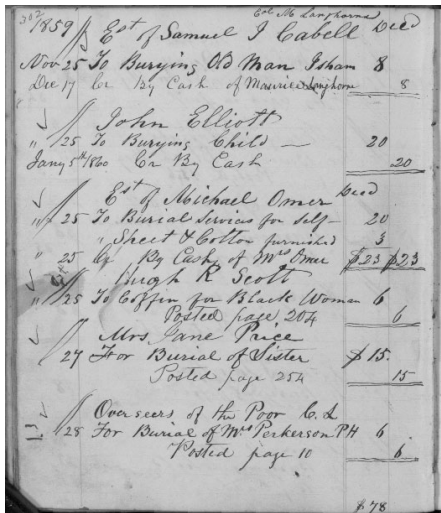 302
Col M Langhorne
1859 Est of Samuel J Cabell Decd
Nov 25 To Burying Old Man Isham 8
Dec 17 Cr By Cash of Maurice Langhorne 8
John Elliott
" 25 To Burying Child — 20
Jany 5th 1860 Cr By Cash 20
Est of Michael Omer Decd
" 25 To Burial Services for Self 20
" Sheet & Cotton furnished 3
" 25 Cr By Cash of Mrs Omer $23 $23
Hugh R Scott
" 25 To Coffin for Black Woman 6
Posted page 204 6
Mrs Jane Price
27 For Burial of Sister $15.
Posted page 254 15
Overseers of the Poor C. L
28 For Burial of Mrs Perkerson PH 6
Posted page 10 6
$78